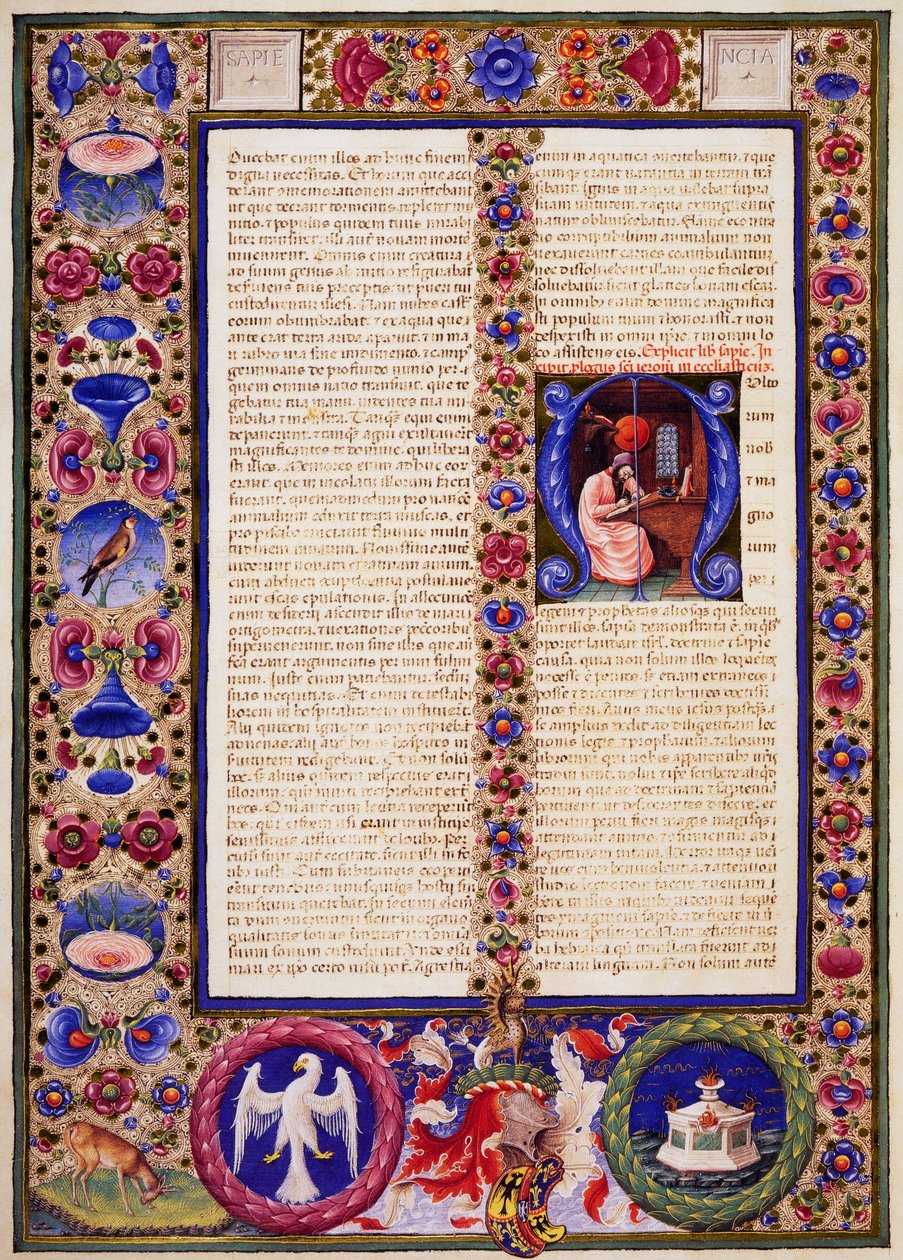 SAPIE
NCIA
Ducebat enim illos ad hunc finem
digna necessitas. Et horum que acci
derant (com)memorationem amittebant
ut que deerant tormentis repleret pu
nitio. ⁊ populus quidem tuus mirabi
liter transiret. illi aut novam mortē
invenirent. Omnis enim creatura
ad suum genus ab initio refigurabat
deserviens tuis preceptis ut pueri tui
custodirentur illesi. Nam nubes cast
eorum obumbrabat. ⁊ ex aqua que
ante erat terra arida apparuit. ⁊ in ma
ri rubro via sine impedimento. ⁊ camp
germinans de profundo nimio per
quem omnis natio transivit. que te
gebatur tua manu. videntes tua mi
rabilia ⁊ monstra. Tanq̄ equi enim
depaverunt. ⁊ tanq̄ agni exultaverūt
magnificantes te domine. qui libera
sti illos. Memores enim adhuc
erant. que in incolatu illorum facta
fuerant. quemadmodum pro natione
animalium eduxit terra muscas. et
pro piscibus eructavit fluvius multi
tudinem ranarum. Novissime aute
viderunt novam creaturam avium
cum adducti
escas epulationis. In
desiderii ascendit illis de mari
ortigometra. ⁊ vexationes peccatoribus
supervenerunt. non sine illis que an
erant argumentis per vim fulmi
num. Iuste enim patiebantur. secundum
suas nequitias. Et enim detestabi
liorem inhospitalitatem instituerūt
Alii quidem ignotos non recipiebāt
advenas. alii aut bonos hospites in
servitutem redigebant. Et non solū
hec. sed alius quidem respectus erat
illorum. qui inviti recipiebant extra
neos. Qui aut cum letitia receperūt
hos. qui eisdem usi erant iustitiis
sevissimis afflixerunt doloribus. Per
cussi sunt aut cecitate. sicut illi in fo
ribus iusti. Cum subitaneis cooperti
essent tenebris. unusquisque hostii sui
transitum querebat. In se enim elem
ta dum convertuntur sicut in organo
qualitatis sonus immutatur. ⁊ omnia
suum sonum custodiunt. Unde esti
mari ex ipso certo visu pot. Agrestia
enim in aquatica convertebantur. ⁊ que
cumq̄ erant natantia in terram tran
sibant. Ignis in aqua valebat supra
suam virtutem. ⁊ aqua extinguentis
nature obliviscebatur. Flamme econtra
rio corruptibilium animalium non
vexaverunt carnes coambulantium
nec dissolvebant illam que facile dis
solvebatur sicut glacies bonam escam.
in omnibus enim domine magnifica
sti populum tuum ⁊ honorasti. ⁊ non
despexisti in omni tpre. ⁊ in omni lo
co assistens eis. Explicit lib sapie. In
cipit plogus sci ieroni in ecclasticuz.
Multo
rum
nob
⁊ ma
gno
rum
per
legem ⁊ prophetas aliosq̄ qui secuti
sunt illos. sapia demonstrata ē. in qbs
oportet laudare isrl. doctrine ⁊ sapie
causa. quia non solum illos loquētes
necesse ē peritos. sed etiam extraneos
posse ⁊ dicentes ⁊ scribentes doctissi
mos fieri. Avus meus iesus postq̄
se amplius dedit ad diligentiam lec
tionis legis ⁊ prophetarum. ⁊ aliorum
librorum qui nobis a parentibus nris
traditi sunt. voluit ⁊ ipse scribere aliqd
horum que ad doctrinam ⁊ sapientiam
pertinent ut desiderantes discere. et
illorum periti facti magis magisq̄
attendant animo. ⁊ confirmentur ad
legitimam vitam. Hortor itaq̄ ve
nire vos cum benivolentia. ⁊ attentiori
studio lectionem facere. ⁊ veniam
habere in illis in quibus videmur sequē
tes imaginem sapie. ⁊ deficere in ver
borum compositione. Nam deficiunt ver
ba hebraica qn translata fuerint ad
alteram linguam. Non solum autē